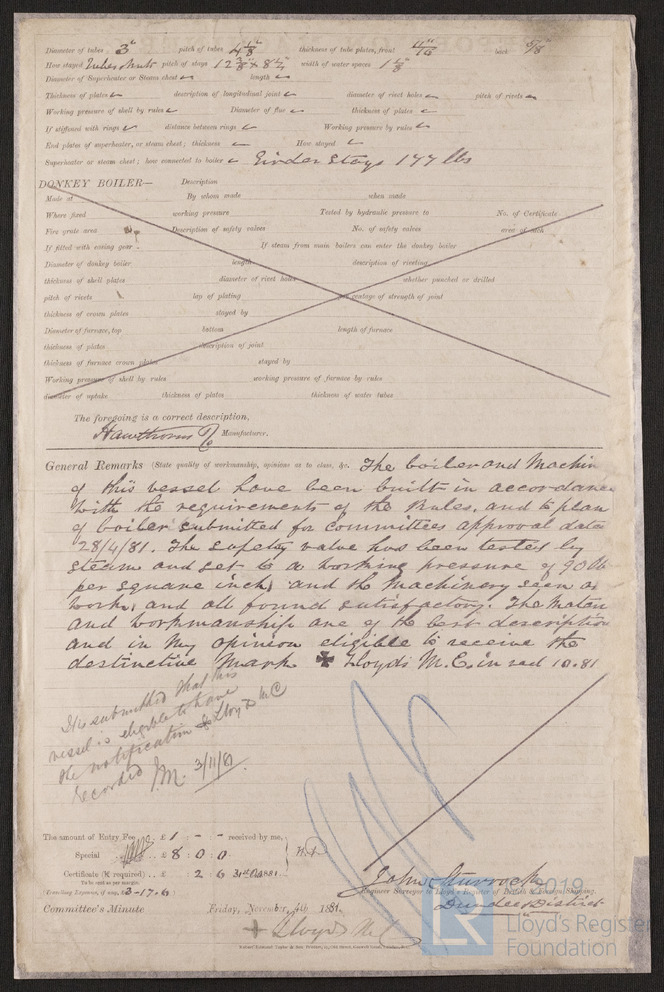 Diameter of tubes 3" pitch of tubes 4 1/8" thickness of tube plates, front 11/16" back 5/8"
How stayed Tubes & nuts pitch of stays 12 3/8" x 8 1/2" width of water spaces 1 1/8"
Diameter of Superheater or Steam chest length
Thickness of plates description of longitudinal joint diameter of rivet holes pitch of rivets
Working pressure of shell by rules Diameter of flue thickness of plates
If stiffened with rings distance between rings Working pressure by rules
End plates of superheater, or steam chest; thickness How stayed
Superheater or steam chest; how connected to boiler Girder Stays 144 lbs
DONKEY BOILER— Description
Made at By whom made when made
Where fixed working pressure Tested by hydraulic pressure to No. of Certificate
Fire grate area Description of safety valves No. of safety valves area of each
If fitted with easing gear If steam from main boilers can enter the donkey boiler
Diameter of donkey boiler length description of riveting
thickness of shell plates diameter of rivet holes whether punched or drilled
pitch of rivets lap of plating percentage of strength of joint
thickness of crown plates stayed by
Diameter of furnace, top bottom length of furnace
thickness of plates description of joint
thickness of furnace crown plates stayed by
Working pressure of shell by rules working pressure of furnace by rules
diameter of uptake thickness of plates thickness of water tubes
The foregoing is a correct description,
Hawthorns & Co Manufacturer.
General Remarks (State quality of workmanship, opinions as to class, &c. The boiler and Machin
of this vessel have been built in accordance
with the requirements of the Rules, and to plan
of boiler submitted for committees approval date
28/4/81. The safety valve has been tested by
steam and set to a working pressure of 90 lb
per square inch, and the Machinery seen a
work, and all found satisfactory. The Mater
and workmanship are of the best description
and in my opinion eligible to receive the
destinctive Mark ✠ Lloyds M.C. in red 10.81
It is submitted that this
vessel is eligible to have
the notification ✠ Lloyds MC
recorded J.M. 3/11/81
The amount of Entry Fee .. £ 1 : - : - received by me,
Special .. £ 8 : 0 : 0
Certificate (if required) .. £ : 2 : 6 31st Oct 1881
To be sent as per margin.
(Travelling Expenses, if any, £ 3-17-6)
John Sturrock
Engineer Surveyor to Lloyd's Register of British & Foreign Shipping.
Dundee District
Committee's Minute Friday, November, 4th 1881.
+ Lloyds M.C.
© 2019
LR
Lloyd's Register
Foundation